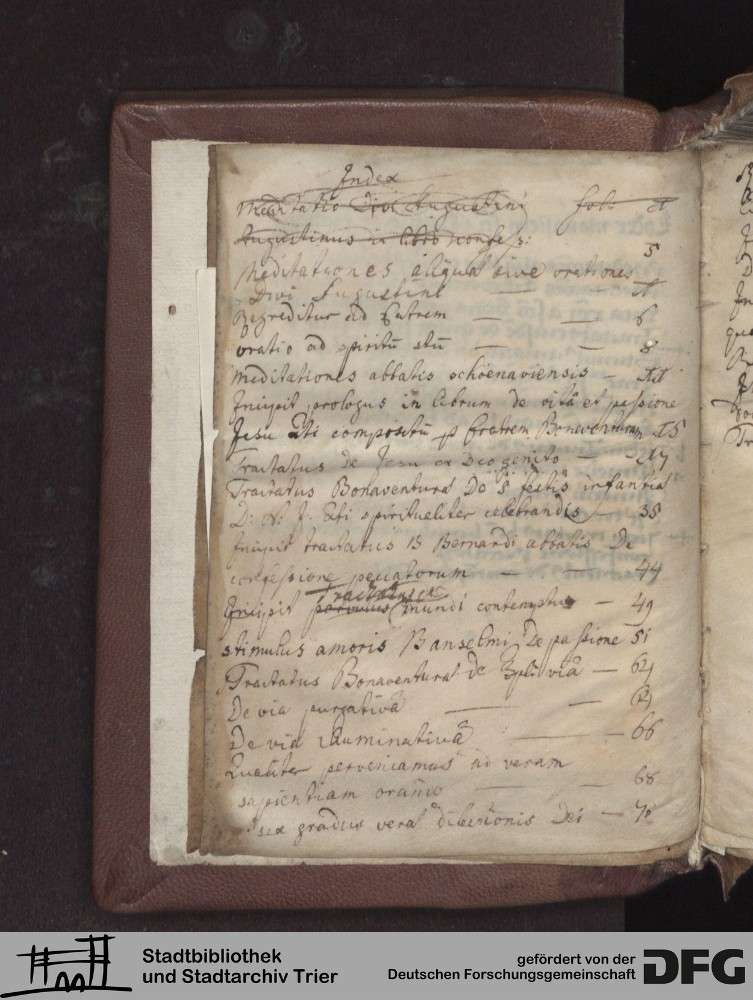 Index
Meditatio Divi Augustini folio
Augustinus in libro confess:
5
Meditationes aliquæ sive orationes
Divi Augustini — —
Progreditur ad Patrem — — 6
oratio ad spiritū stū — — 8
Meditationes abbatis schöenaviensis —
Incipit prologus in librum de vitâ et passione
Jesu Xti compositū p fratrem Bonaventuram 15
Tractatus de Jesu — 17
Tractatus Bonaventuræ De 5 festis infantiæ
D: N. J. Xti spiritualiter celebrandis — 35
Incipit tractatus B Bernardi abbatis De
confessione peccatorum — — 44
Incipit tractatus mundi contemptus — 49
stimulus amoris B anselmi De passione 51
Tractatus Bonaventuræ de triplici viâ — 61
De via purgativâ — —
De viâ illuminativâ — 66
Qualiter perveniamus ad veram
sapientiam orando — — 68
sex gradus veræ dilectionis Dei — 70
Stadtbibliothek
und Stadtarchiv Trier
gefördert von der
Deutschen Forschungsgemeinschaft
DFG